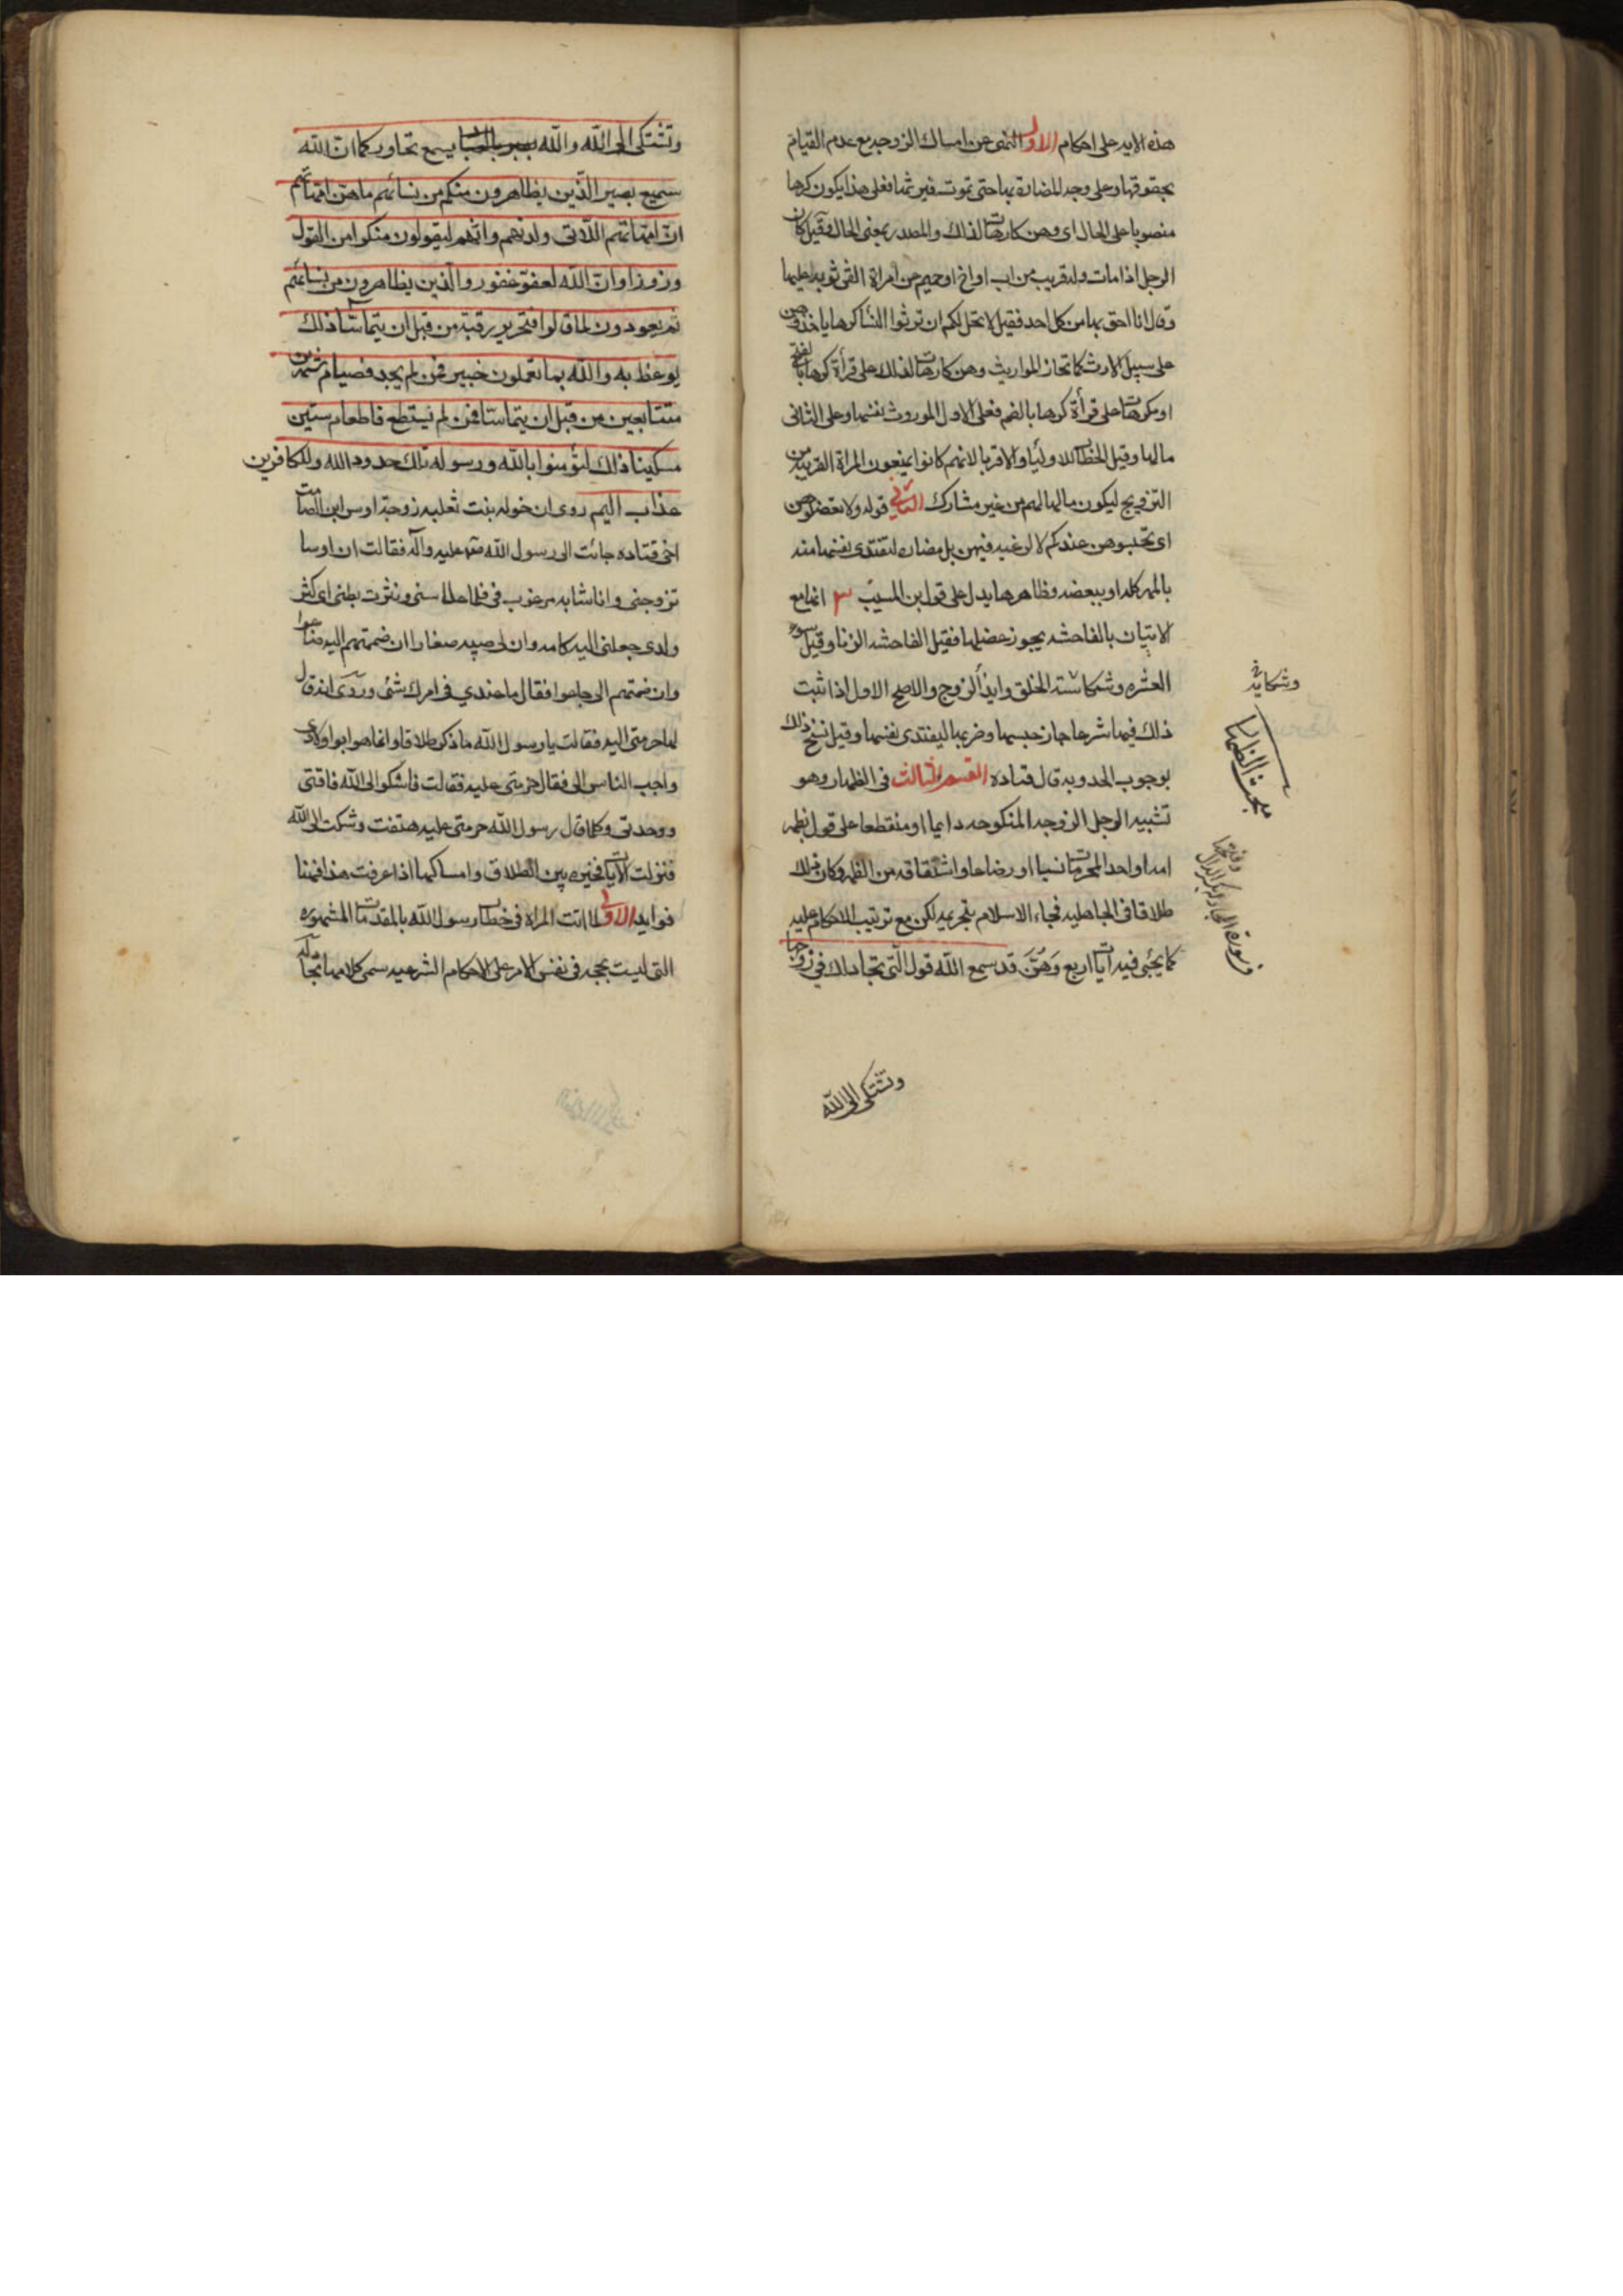 هذه الايه على احكام الاول النهى عن امساك الزوجه مع عدم القيام
بحقوقها وعلى وجه المضارة بها حتى تموت فيرثها فعلى هذا يكون كرها
منصوبا على الحال اى وهن كارهات لذلك والمصدر بمعنى الحال وقيل كان
الرجل اذا مات وله قريب من اب او اخ او حميم عن امراة القى ثوبه عليها
وقال انا احق بها من كل احد فقيل لا يحل لكم ان ترثوا النسا كرها ياخذوهن
على سبيل الارث كما تحاز المواريث وهن كارهات لذلك على قرأة كرها بالفتح
او مكرهات على قرأة كرها بالضم فعلى الاول الموروث نفسها وعلى الثانى
مالها وقيل الخطاب للاولياء والاقربا لانهم كانوا يمنعون المراة القريبة من
التزويج ليكون مالها لهم من غير مشارك الثانى قوله ولا تعضلوهن
اى تحبسوهن عندكم لا لرغبه فيهن بل مضاره لتفتدى نفسها منه
بالمهر كله او ببعضه وظاهرها يدل على قول ابن المسيب ٣ انها مع
الاتيان بالفاحشه يجوز عضلها فقيل الفاحشه الزنا وقيل سوء
العشره وشكاسة الخلق وايذاء الزوج والاصح الاول اذا ثبت
ذلك فيها شرعا جاز حبسها وضربها ليفتدى نفسها وقيل نسخ ذلك
بوجوب الحد وبه قال قتاده القسم الثالث فى الظهار وهو
تشبيه الرجل الزوجه المنكوحه دايما او منقطعا على قول بظهر
امه او احد المحرمات نسبا او رضاعا واشتقاقه من الظهر وكان ذلك
طلاقا فى الجاهليه فجاء الاسلام بتحريمه لكن مع ترتيب الاحكام عليه
كما يجئى فيه ايات اربع وَهُنَّ قد سمع الله قول الّتى تجادلك في زوجها
وتشتكى الى الله
وشكايه
مبحث الظهار
وتشتكى الى الله والله يسمع تحاوركما ان الله
سميع بصير الّذين يظاهرون منكم من نسائهم ما هن امهاتهم
ان امهاتهم اللاتى ولدنهم وانهم ليقولون منكرا من القول
وزورا وان الله لعفو غفور والّذين يظاهرون من نسائهم
ثم يعودون لما قالوا فتحرير رقبة من قبل ان يتماسّا ذلك
يوعظ به والله بما تعملون خبير فمن لم يجد فصيام شهرين
متتابعين من قبل ان يتماسا فمن لم يستطع فاطعام ستين
مسكينا ذلك لتؤمنوا بالله ورسوله تلك حدود الله وللكافرين
عذاب اليم روى ان خوله بنت ثعلبه زوجة اوس ابن الصامت
اخى قتاده جائت الى رسول الله صلى الله عليه وآله فقالت ان اوسا
تزوجنى وانا شابه مرغوب فى فلما علا سنى ونثرت بطنى اى كثر
ولدى جعلنى اليه كامه وان لى صبيه صغارا ان ضممتهم اليه ضاعوا
وان ضممتهم الى جاعوا فقال ما عندي فى امرك شئى وروى انه قال
لها حرمتى اليه فقالت يا رسول الله ما ذكر طلاقا وانما هو ابو اولادى
واحب الناس الى فقال حرمتى عليه فقالت فاشكو الى الله فاقتى
ووحدتى وكلما قال رسول الله حرمتى عليه هتفت وشكت الى الله
فنزلت الآيات فخيره بين الطلاق وامساكها اذا عرفت هذا فهنا
فوايد الاولى لما اتت المراة فى خطاب رسول الله بالمقدمات المشهوره
التى ليست بحجه فى نفس الامر على الاحكام الشرعيه سمى كلامها مجادله